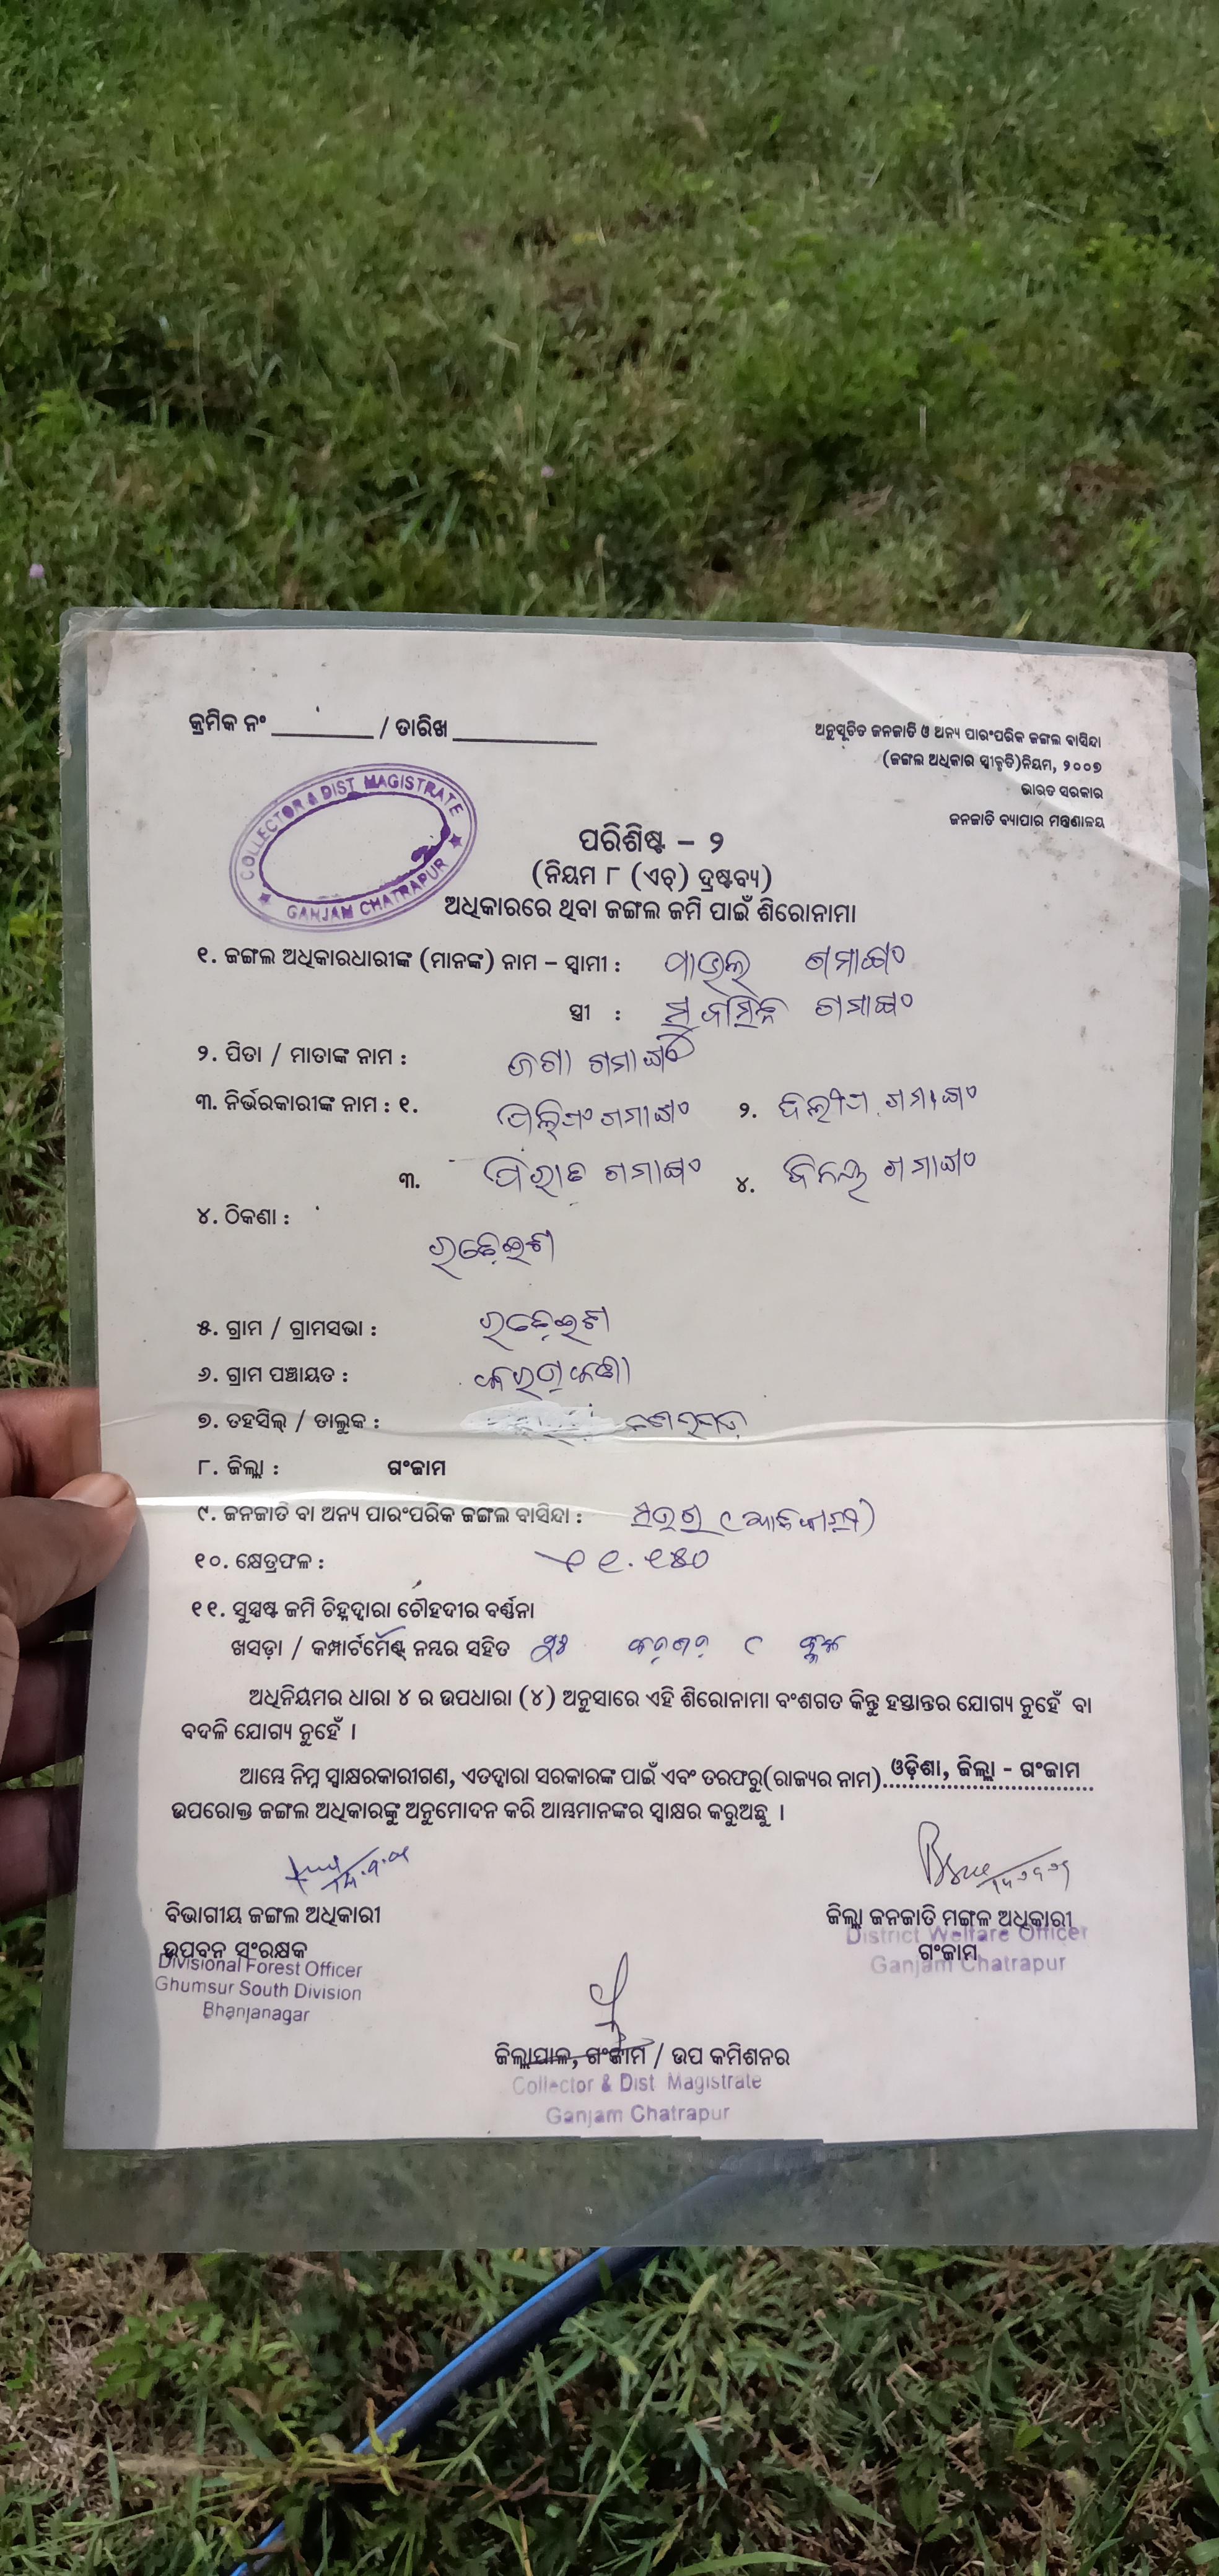 କ୍ରମିକ ନଂ ________ / ତାରିଖ ____________
ଅନୁସୂଚିତ ଜନଜାତି ଓ ଅନ୍ୟ ପାରଂପରିକ ଜଙ୍ଗଲ ବାସିନ୍ଦା
(ଜଙ୍ଗଲ ଅଧିକାର ସ୍ୱୀକୃତି) ନିୟମ, ୨୦୦୭
ଭାରତ ସରକାର
ଜନଜାତି ବ୍ୟାପାର ମନ୍ତ୍ରଣାଳୟ
COLLECTOR & DIST MAGISTRATE
GANJAM CHATRAPUR
ପରିଶିଷ୍ଟ – ୨
(ନିୟମ ୮ (ଏଚ୍) ଦ୍ରଷ୍ଟବ୍ୟ)
ଅଧିକାରରେ ଥିବା ଜଙ୍ଗଲ ଜମି ପାଇଁ ଶିରୋନାମା
୧. ଜଙ୍ଗଲ ଅଧିକାରଧାରୀଙ୍କ (ମାନଙ୍କ) ନାମ – ସ୍ୱାମୀ : ପାଉଲ୍ ଗମାଙ୍ଗ
ସ୍ତ୍ରୀ : ଗମାଙ୍ଗ
୨. ପିତା / ମାତାଙ୍କ ନାମ : ଜଗା ଗମାଙ୍ଗ
୩. ନିର୍ଭରକାରୀଙ୍କ ନାମ : ୧. ଗମାଙ୍ଗ ୨. ଦିଲୀପ ଗମାଙ୍ଗ
୩. ଗମାଙ୍ଗ ୪. ଗମାଙ୍ଗ
୪. ଠିକଣା :
୫. ଗ୍ରାମ / ଗ୍ରାମସଭା :
୬. ଗ୍ରାମ ପଞ୍ଚାୟତ :
୭. ତହସିଲ୍ / ତାଲୁକ :
୮. ଜିଲ୍ଲା : ଗଂଜାମ
୯. ଜନଜାତି ବା ଅନ୍ୟ ପାରଂପରିକ ଜଙ୍ଗଲ ବାସିନ୍ଦା :
୧୦. କ୍ଷେତ୍ରଫଳ :
୧୧. ସୁସ୍ପଷ୍ଟ ଜମି ଚିହ୍ନଦ୍ୱାରା ଚୌହଦୀର ବର୍ଣ୍ଣନା
ଖସଡ଼ା / କମ୍ପାର୍ଟମେଣ୍ଟ୍ ନମ୍ବର ସହିତ
ଅଧିନିୟମର ଧାରା ୪ ର ଉପଧାରା (୪) ଅନୁସାରେ ଏହି ଶିରୋନାମା ବଂଶଗତ କିନ୍ତୁ ହସ୍ତାନ୍ତର ଯୋଗ୍ୟ ନୁହେଁ ବା
ବଦଳି ଯୋଗ୍ୟ ନୁହେଁ ।
ଆମ୍ଭେ ନିମ୍ନ ସ୍ୱାକ୍ଷରକାରୀଗଣ, ଏତଦ୍ୱାରା ସରକାରଙ୍କ ପାଇଁ ଏବଂ ତରଫରୁ(ରାଜ୍ୟର ନାମ) ଓଡ଼ିଶା, ଜିଲ୍ଲା - ଗଂଜାମ
ଉପରୋକ୍ତ ଜଙ୍ଗଲ ଅଧିକାରଙ୍କୁ ଅନୁମୋଦନ କରି ଆମ୍ଭମାନଙ୍କର ସ୍ୱାକ୍ଷର କରୁଅଛୁ ।
ବିଭାଗୀୟ ଜଙ୍ଗଲ ଅଧିକାରୀ
ଉପବନ ସଂରକ୍ଷକ
Divisional Forest Officer
Ghumsur South Division
Bhanjanagar
ଜିଲ୍ଲା ଜନଜାତି ମଙ୍ଗଳ ଅଧିକାରୀ
ଗଂଜାମ
District Welfare Officer
Ganjam Chatrapur
ଜିଲ୍ଲାପାଳ, ଗଂଜାମ / ଉପ କମିଶନର
Collector & Dist Magistrate
Ganjam Chatrapur